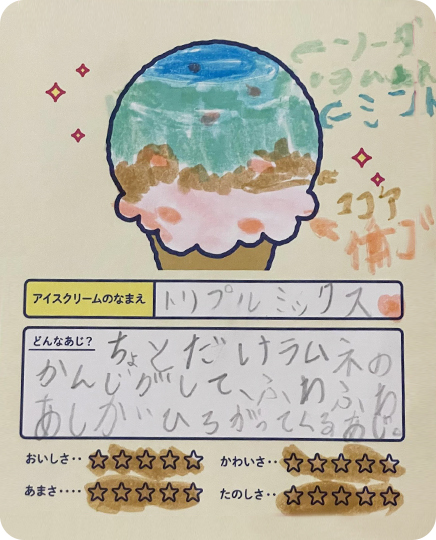 ←ソーダ
←ミント
ココア
アイスクリームのなまえ トリプルミックス
どんなあじ? ちょとだけラムネの
かんじがして、ふわふわ
あじがひろがってくるあじ。
おいしさ‥ ☆☆☆☆☆ かわいさ‥ ☆☆☆☆☆
あまさ‥‥ ☆☆☆☆☆ たのしさ‥ ☆☆☆☆☆